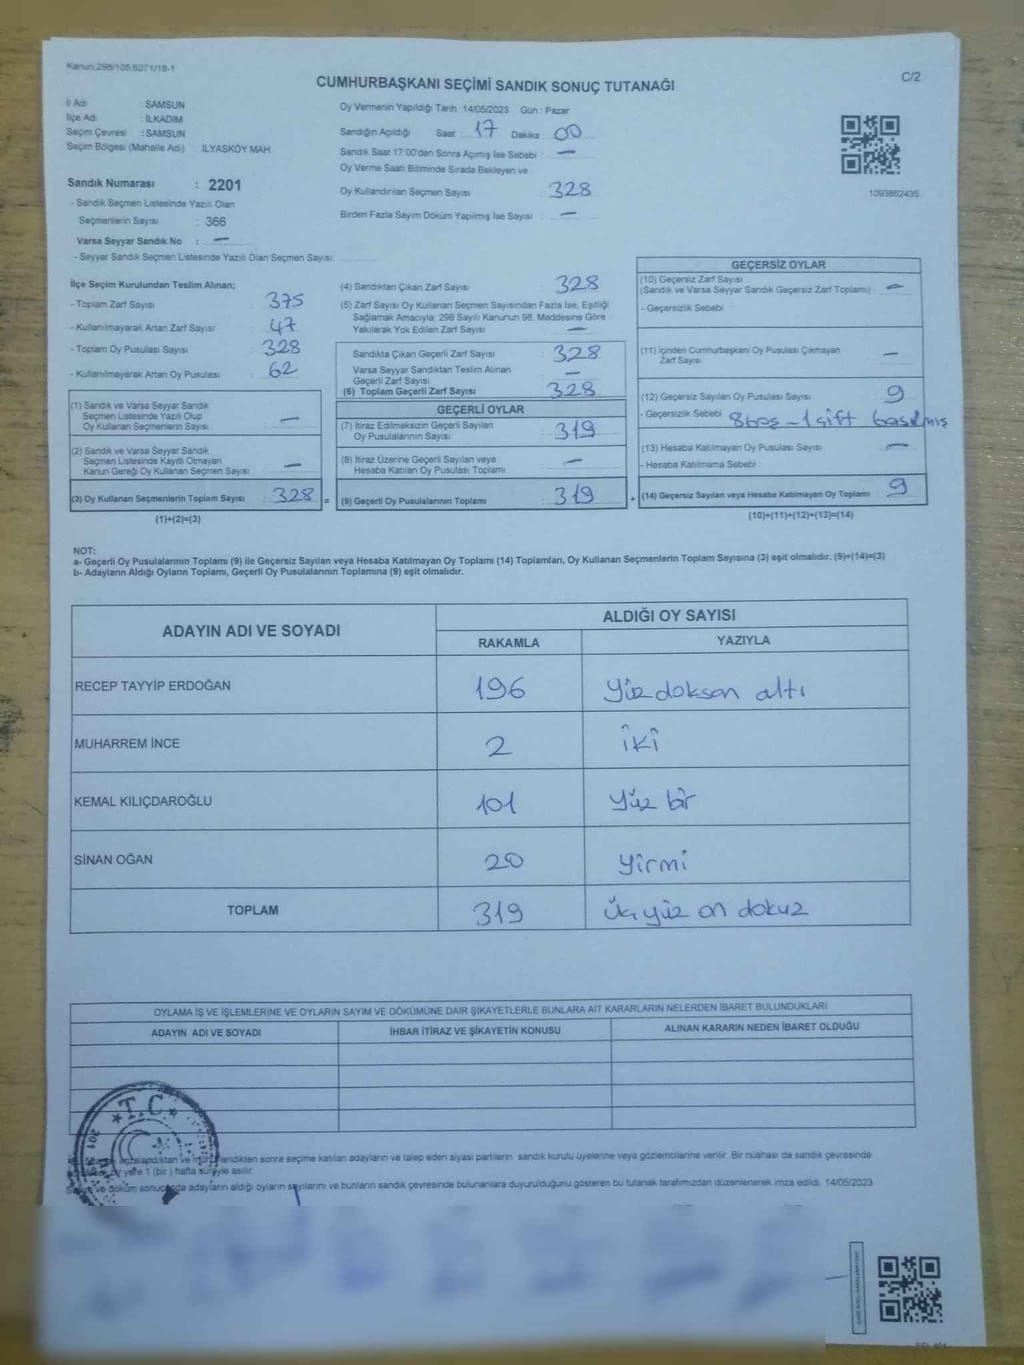 Kanun:298/105,6271/18-1
CUMHURBAŞKANI SEÇİMİ SANDIK SONUÇ TUTANAĞI
C/2
İl Adı SAMSUN
İlçe Adı İLKADIM
Seçim Çevresi : SAMSUN
Seçim Bölgesi (Mahalle Adı) İLYASKÖY MAH.
Oy Vermenin Yapıldığı Tarih :14/05/2023 Gün : Pazar
Sandığın Açıldığı Saat : 17 Dakika : 00
Sandık Saat 17:00'den Sonra Açılmış İse Sebebi : —
Oy Verme Saati Bitiminde Sırada Bekleyen ve
Oy Kullandırılan Seçmen Sayısı : 328
Birden Fazla Sayım Döküm Yapılmış İse Sayısı : —
1093862435
Sandık Numarası : 2201
- Sandık Seçmen Listesinde Yazılı Olan
Seçmenlerin Sayısı : 366
Varsa Seyyar Sandık No : —
- Seyyar Sandık Seçmen Listesinde Yazılı Olan Seçmen Sayısı:
İlçe Seçim Kurulundan Teslim Alınan;
- Toplam Zarf Sayısı : 375
- Kullanılmayarak Artan Zarf Sayısı : 47
- Toplam Oy Pusulası Sayısı : 328
- Kullanılmayarak Artan Oy Pusulası : 62
(1) Sandık ve Varsa Seyyar Sandık
Seçmen Listesinde Yazılı Olup
Oy Kullanan Seçmenlerin Sayısı : —
(2) Sandık ve Varsa Seyyar Sandık
Seçmen Listesinde Kayıtlı Olmayan
Kanun Gereği Oy Kullanan Seçmen Sayısı : —
(3) Oy Kullanan Seçmenlerin Toplam Sayısı : 328 =
(1)+(2)=(3)
(4) Sandıktan Çıkan Zarf Sayısı : 328
(5) Zarf Sayısı Oy Kullanan Seçmen Sayısından Fazla İse, Eşitliği
Sağlamak Amacıyla; 298 Sayılı Kanunun 98. Maddesine Göre
Yakılarak Yok Edilen Zarf Sayısı : —
Sandıkta Çıkan Geçerli Zarf Sayısı : 328
Varsa Seyyar Sandıktan Teslim Alınan
Geçerli Zarf Sayısı : —
(6) Toplam Geçerli Zarf Sayısı : 328
GEÇERLİ OYLAR
(7) İtiraz Edilmeksizin Geçerli Sayılan
Oy Pusulalarının Sayısı : 319
(8) İtiraz Üzerine Geçerli Sayılan veya
Hesaba Katılan Oy Pusulası Toplamı : —
(9) Geçerli Oy Pusulalarının Toplamı : 319 +
GEÇERSİZ OYLAR
(10) Geçersiz Zarf Sayısı
(Sandık ve Varsa Seyyar Sandık Geçersiz Zarf Toplamı) : —
- Geçersizlik Sebebi :
(11) İçinden Cumhurbaşkanı Oy Pusulası Çıkmayan
Zarf Sayısı : —
(12) Geçersiz Sayılan Oy Pusulası Sayısı : 9
- Geçersizlik Sebebi : 8 boş - 1 çift basılmış
(13) Hesaba Katılmayan Oy Pusulası Sayısı : —
- Hesaba Katılmama Sebebi :
(14) Geçersiz Sayılan veya Hesaba Katılmayan Oy Toplamı : 9
(10)+(11)+(12)+(13)=(14)
NOT:
a- Geçerli Oy Pusulalarının Toplamı (9) ile Geçersiz Sayılan veya Hesaba Katılmayan Oy Toplamı (14) Toplamları, Oy Kullanan Seçmenlerin Toplam Sayısına (3) eşit olmalıdır. (9)+(14)=(3)
b- Adayların Aldığı Oyların Toplamı, Geçerli Oy Pusulalarının Toplamına (9) eşit olmalıdır.
ADAYIN ADI VE SOYADI ALDIĞI OY SAYISI
RAKAMLA YAZIYLA
RECEP TAYYİP ERDOĞAN 196 yüzdoksan altı
MUHARREM İNCE 2 iki
KEMAL KILIÇDAROĞLU 101 yüz bir
SİNAN OĞAN 20 yirmi
TOPLAM 319 üç yüz on dokuz
OYLAMA İŞ VE İŞLEMLERİNE VE OYLARIN SAYIM VE DÖKÜMÜNE DAİR ŞİKAYETLERLE BUNLARA AİT KARARLARIN NELERDEN İBARET BULUNDUKLARI
ADAYIN ADI VE SOYADI İHBAR İTİRAZ VE ŞİKAYETİN KONUSU ALINAN KARARIN NEDEN İBARET OLDUĞU
T.C.
imzalandıktan ve mühürlendikten sonra seçime katılan adayların ve talep eden siyasi partilerin sandık kurulu üyelerine veya gözlemcilerine verilir. Bir nüshası da sandık çevresinde
bir yere 1 (bir) hafta süreyle asılır.
Sayım ve döküm sonucunda adayların aldığı oyların sayılarını ve bunların sandık çevresinde bulunanlara duyurulduğunu gösteren bu tutanak tarafımızdan düzenlenerek imza edildi. 14/05/2023